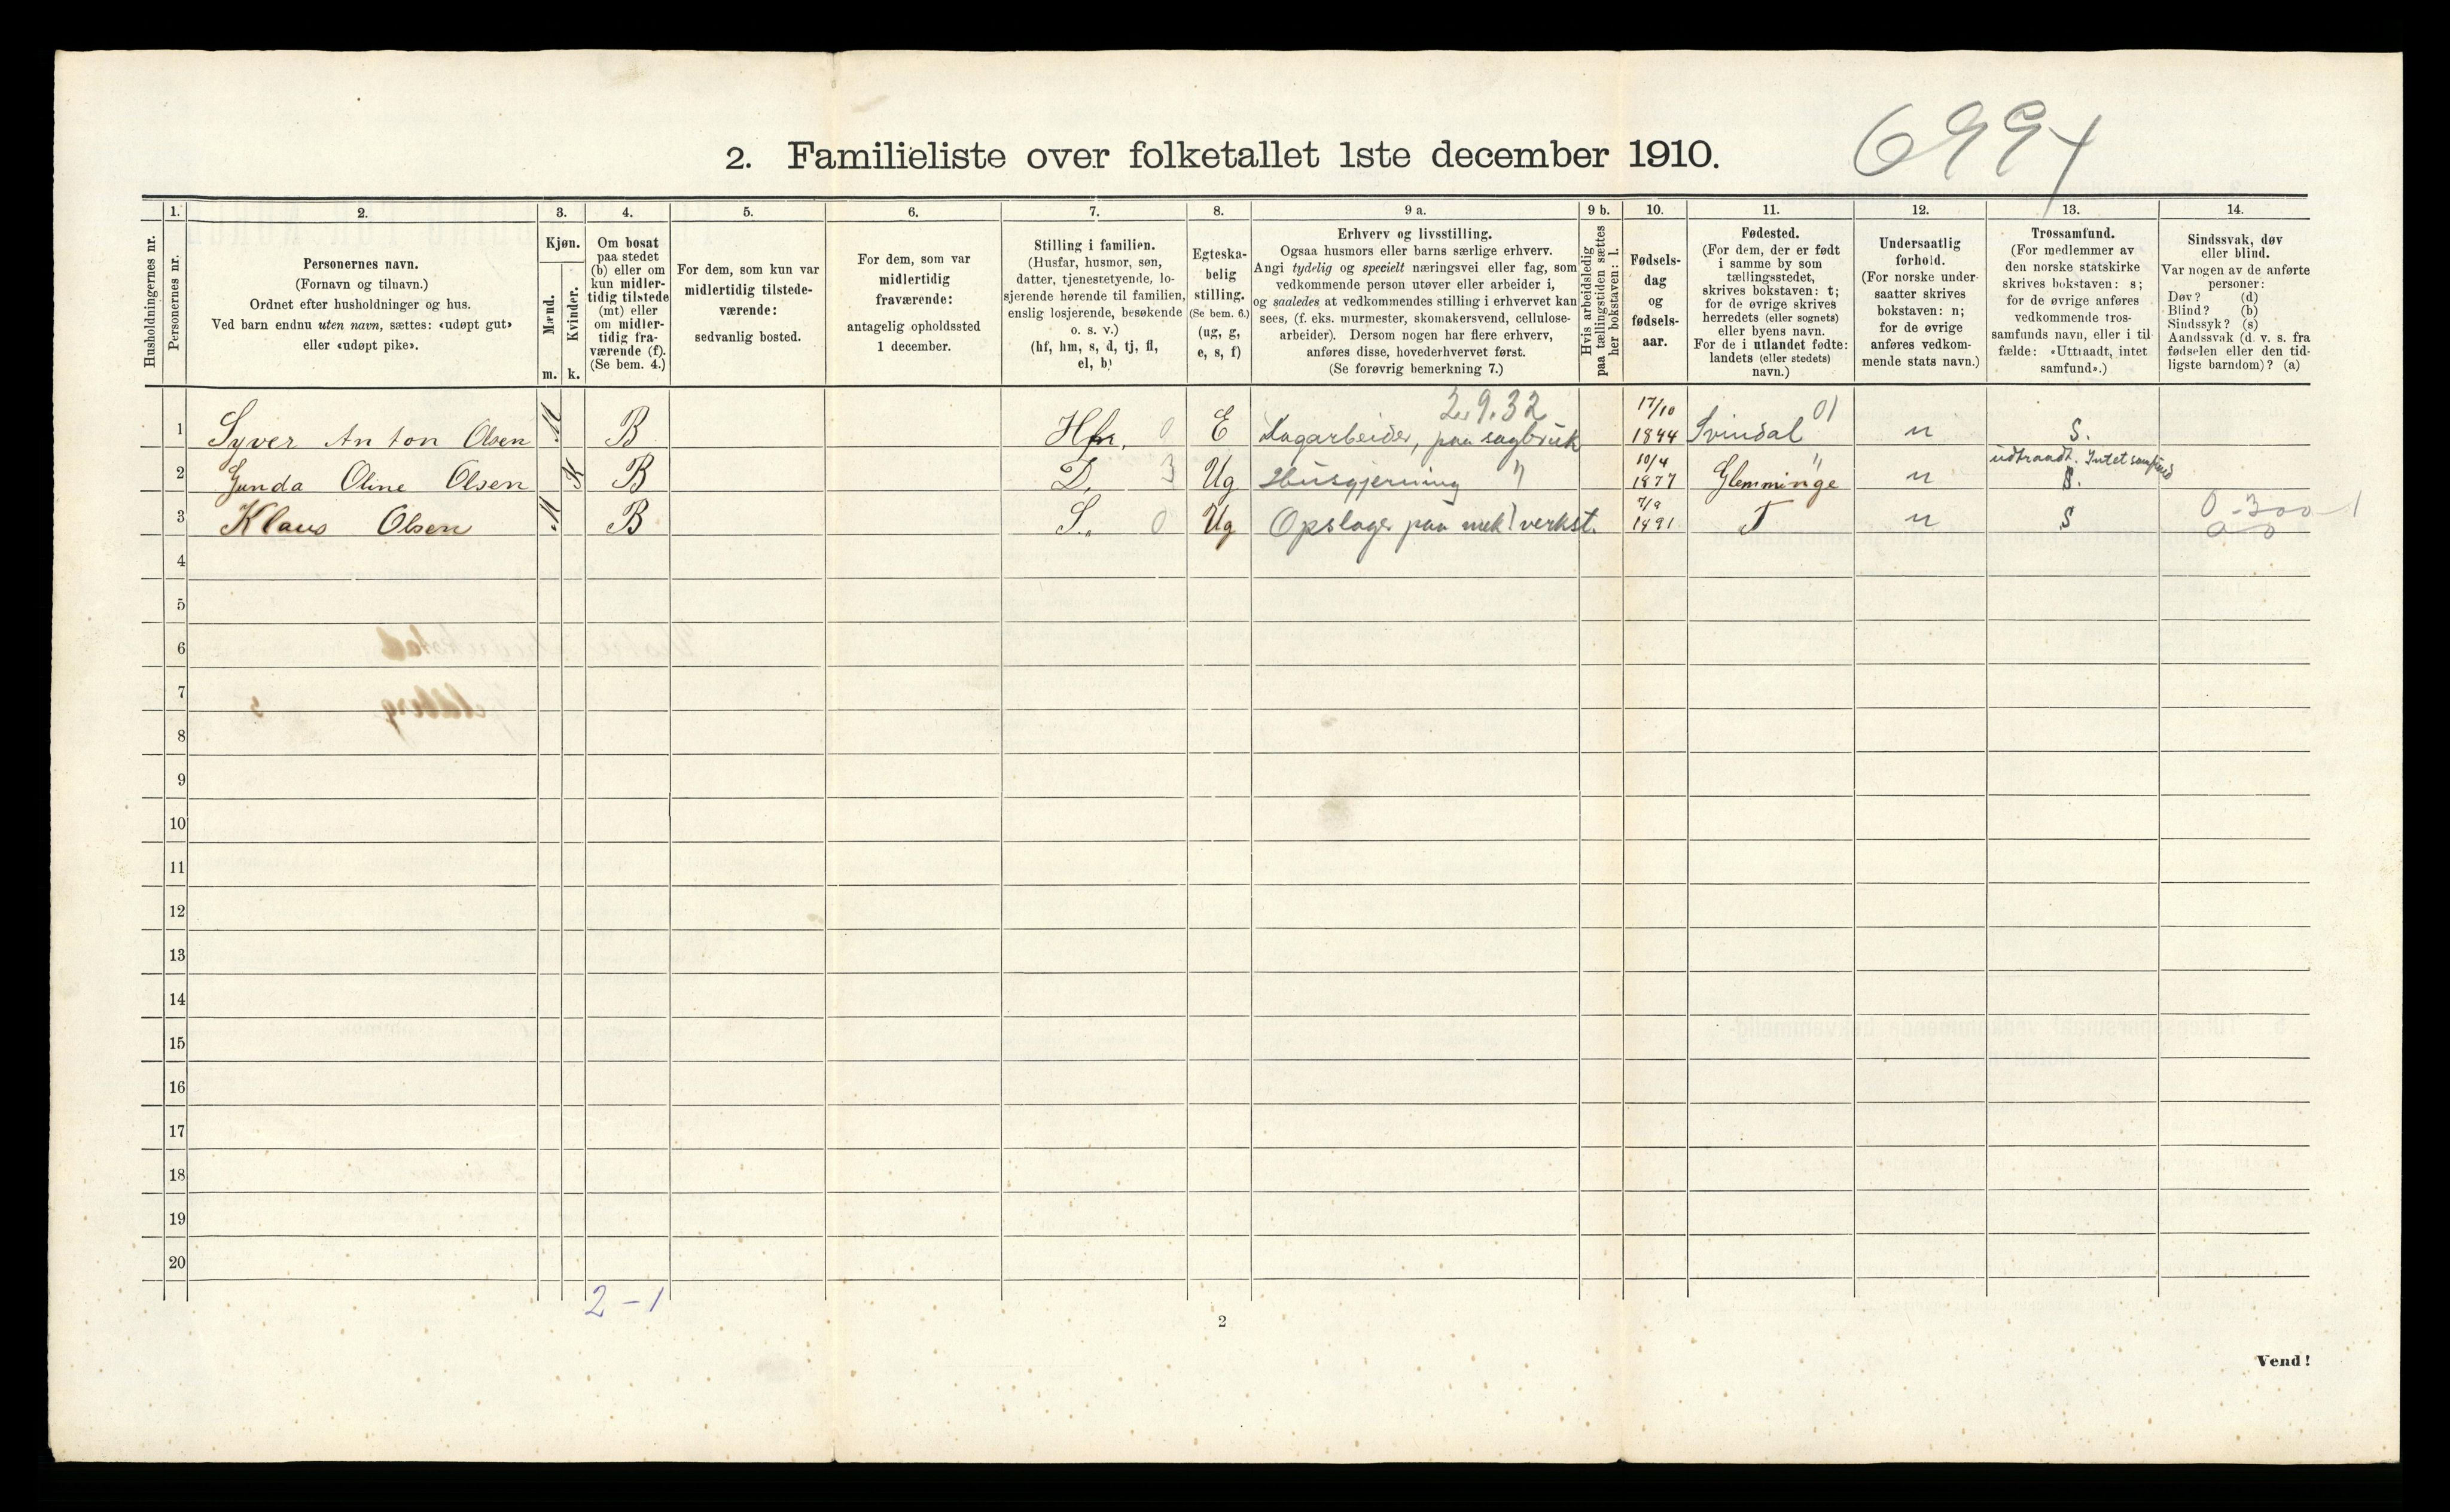 6994
2. Familieliste over folketallet 1ste december 1910.
1. 2. 3. 4. 5. 6. 7. 8. 9 a. 9 b. 10. 11. 12. 13. 14.
Husholdningernes nr.
Personernes nr.
Personernes navn.
(Fornavn og tilnavn.)
Ordnet efter husholdninger og hus.
Ved barn endnu uten navn, sættes: «udøpt gut»
eller «udøpt pike».
Kjøn.
Mænd.
m.
Kvinder.
k.
Om bosat
paa stedet
(b) eller om
kun midler-
tidig tilstede
(mt) eller
om midler-
tidig fra-
værende (f).
(Se bem. 4.)
For dem, som kun var
midlertidig tilstede-
værende:
sedvanlig bosted.
For dem, som var
midlertidig
fraværende:
antagelig opholdssted
1 december.
Stilling i familien.
(Husfar, husmor, søn,
datter, tjenestetyende, lo-
sjerende hørende til familien,
enslig losjerende, besøkende
o. s. v.)
(hf, hm, s, d, tj, fl,
el, b)
Egteska-
belig
stilling.
(Se bem. 6.)
(ug, g,
e, s, f)
Erhverv og livsstilling.
Ogsaa husmors eller barns særlige erhverv.
Angi tydelig og specielt næringsvei eller fag, som
vedkommende person utøver eller arbeider i,
og saaledes at vedkommendes stilling i erhvervet kan
sees, (f. eks. murmester, skomakersvend, cellulose-
arbeider). Dersom nogen har flere erhverv,
anføres disse, hovederhvervet først.
(Se forøvrig bemerkning 7.)
Hvis arbeidsledig
paa tællingstiden sættes
her bokstaven: l.
Fødsels-
dag
og
fødsels-
aar.
Fødested.
(For dem, der er født
i samme by som
tællingsstedet,
skrives bokstaven: t;
for de øvrige skrives
herredets (eller sognets)
eller byens navn.
For de i utlandet fødte:
landets (eller stedets)
navn.)
Undersaatlig
forhold.
(For norske under-
saatter skrives
bokstaven: n;
for de øvrige
anføres vedkom-
mende stats navn.)
Trossamfund.
(For medlemmer av
den norske statskirke
skrives bokstaven: s;
for de øvrige anføres
vedkommende tros-
samfunds navn, eller i til-
fælde: «Uttraadt, intet
samfund».)
Sindssvak, døv
eller blind.
Var nogen av de anførte
personer:
Døv? (d)
Blind? (b)
Sindssyk? (s)
Aandssvak (d. v. s. fra
fødselen eller den tid-
ligste barndom)? (a)
2.9.32 17/10 01
1 Syver Anton Olsen M B Hf. 0 E Lagarbeider, paa sagbruk 1844 Svindal n S.
10/4 " udtraadt. Intet samfund
2 Gunda Oline Olsen K B D. 3 Ug Husgjerning " 1877 Glemminge n S.
7/9 0-300-1
3 Klaus Olsen M B S. 0 Ug Opslager paa mek verkst. 1891 T n S 0-0
4
5
6
7
8
9
10
11
12
13
14
15
16
17
18
19
20
2-1
2
Vend!